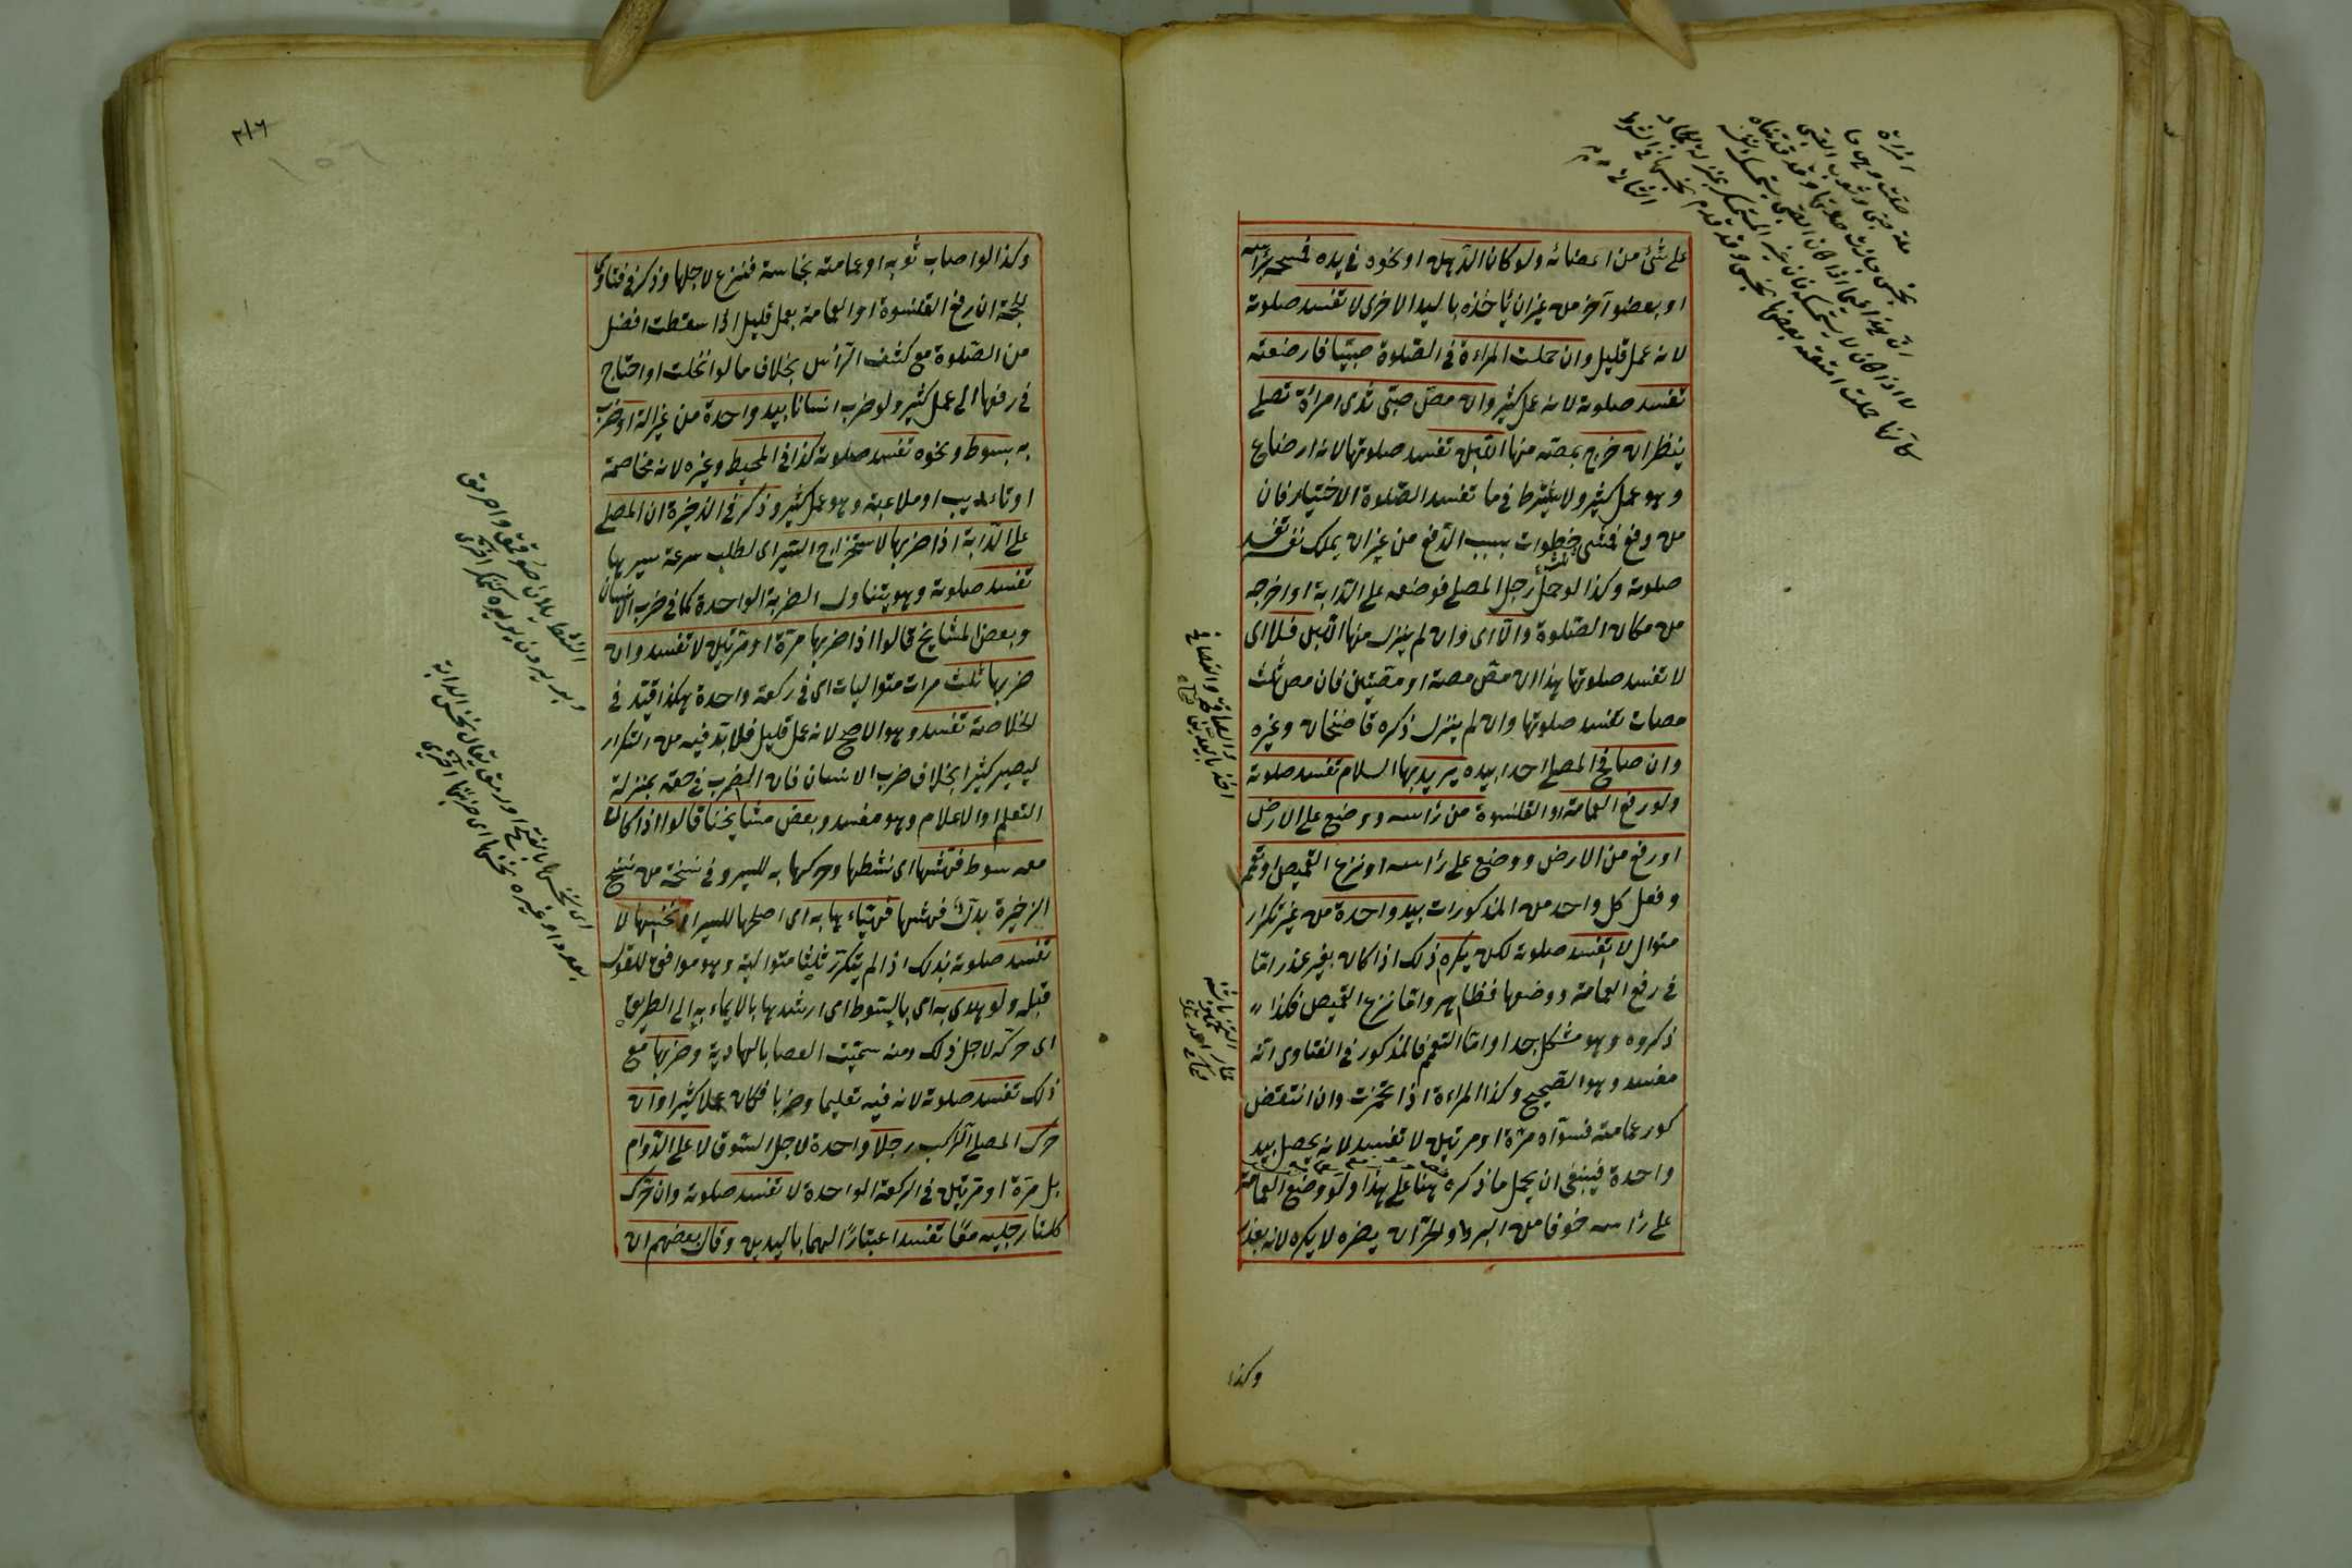 على شئ من اعضائه ولو كان الدهن او نحوه فى يده فمسحه برأسه
او بعضو آخر من غيران يأخذه باليد الاخرى لا تفسد صلوته
لانه عمل قليل وان حملت المراءة فى الصلوة صبيّا فارضعته
تفسد صلوته لانه عمل كثير وان مصّ صبى ثدى امراة تصلى
ينظر ان خرج بمصّه منها اللبن تفسد صلوتها لانه ارضاع
وهو عمل كثير ولا يشترط فى ما تفسد الصلوة الاختيار فان
من دفع فمشى خطوات بسبب الدفع من غيران يملك نفسه تفسد
صلوته وكذا لو حمل رجل المصلى فوضعه على الدابة او اخرجه
من مكان الصلوة والّا اى وان لم ينزل منها اللبن فلا اى
لا تفسد صلوتها هذا ان مصّ مصة او مصّتين فان مص ثلث
مصات تفسد صلوتها وان لم ينزل ذكره قاضيخان وغيره
وان صافح المصلى احدا بيده يريد بها السلام تفسد صلوته
ولو رفع العمامة او القلنسوة من رأسه ووضع على الارض
او رفع من الارض ووضع على رأسه او نزع القميص او تعمم
وفعل كل واحد من المذكورات بيد واحدة من غير تكرار
متوال لا تفسد صلوته لكن يكره ذلك اذا كان بغير عذر امّا
فى رفع العمامة ووضعها فظاهر وامّا نزع القميص فكذا
ذكروه وهو مشكل جدا وامّا التعمم فالمذكور فى الفتاوى انّه
مفسد وهو الصحيح وكذا المراءة اذا تخمرت وان انتقض
كور عمامته فسوّاه مرّة او مرتين لا تفسد لانه يحصل بيد
واحدة فينبغى ان يحمل ما ذكره هنا على هذا ولو وضع العمامة
على رأسه خوفا من البرد او الحرّ ان يضره لا يكره لانه بعذر
وكذا
وكذا لو اصاب ثوبه او عمامته نجاسة فنزع لاجلها وذكر فى فتاوى
الحجّة ان رفع القلنسوة او العمامة بعمل قليل اذا سقطت افضل
من الصلوة مع كشف الرأس بخلاف ما لو انحلت او احتاج
فى رفعها الى عمل كثير ولو ضرب انسانا بيد واحدة من غير آلة او ضرب
به بسوط ونحوه تفسد صلوته كذا فى المحيط وغيره لانه مخاصمة
او تاءديب او ملاعبة وهو عمل كثير وذكر فى الذخيرة ان المصلى
على الدّابة اذا ضربها لاستخراج السّير اى لطلب سرعة سيرها
تفسد صلوته وهو يتناول الضربة الواحدة كما فى ضرب الانسان
وبعض المشايخ قالوا اذا ضربها مرّة او مرّتين لا تفسد وان
ضربها ثلث مرات متواليات اى فى ركعة واحدة هكذا قيّد فى
الخلاصة تفسد وهو الاصح لانه عمل قليل فلا بد فيه من التكرار
ليصير كثيرا بخلاف ضرب الانسان فان الضرب فى حقه بمنزلة
التعلم او الاعلام وهو مفسد وبعض مشايخنا قالوا اذا كان
معه سوط فهشها اى نشطها وحركها به للسير وفى نسخة من نسخ
الذخيرة بدل فهشها فهيّاءها به اى اصلحها للسير او نخسها لا
تفسد صلوته بذلك اذا لم يتكرّر ثلثا متوالية وهو موافق للقول
قبله ولو هدى به اى بالسّوط اى ارشدها بالايماء به الى الطريق
اى حركه لاجل ذلك ومنه سمّيت العصا بالهادية وضربها مع
ذلك تفسد صلوته لانه فيه تعليما وضربا فكان عملا كثيرا وان
حرك المصلى الرّاكب رجلًا واحدة لاجل السّوق لا على الدّوام
بل مرّة او مرّتين فى الركعة الواحدة لا تفسد صلوته وان حرّك
كلتا رجليه معًا تفسد اعتبارًا لهما باليدين وقال بعضهم ان